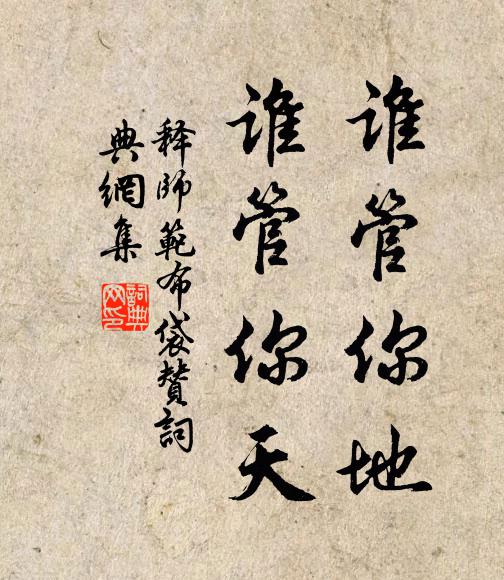 誰管你地
誰管你天
釋師範布袋贊詞
典網集
詞典
网印